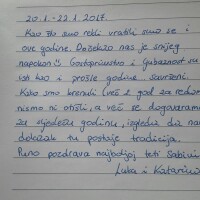 20.1. - 22.1. 2017.
Kao što smo rekli vratili smo se i
ove godine. Dočekao nas je snijeg
napokon :) Gostoprimstvo i ljubaznost su
isti kao i prošle godine, savršeni.
Kako smo krenuli (već 2 god za redom)
nismo ni otišli, a već se dogovaramo
za sljedeću godinu, izgleda da nam
dolazak tu postaje tradicija.
Puno pozdrava najboljoj teti Sabini
Luka i Katarina